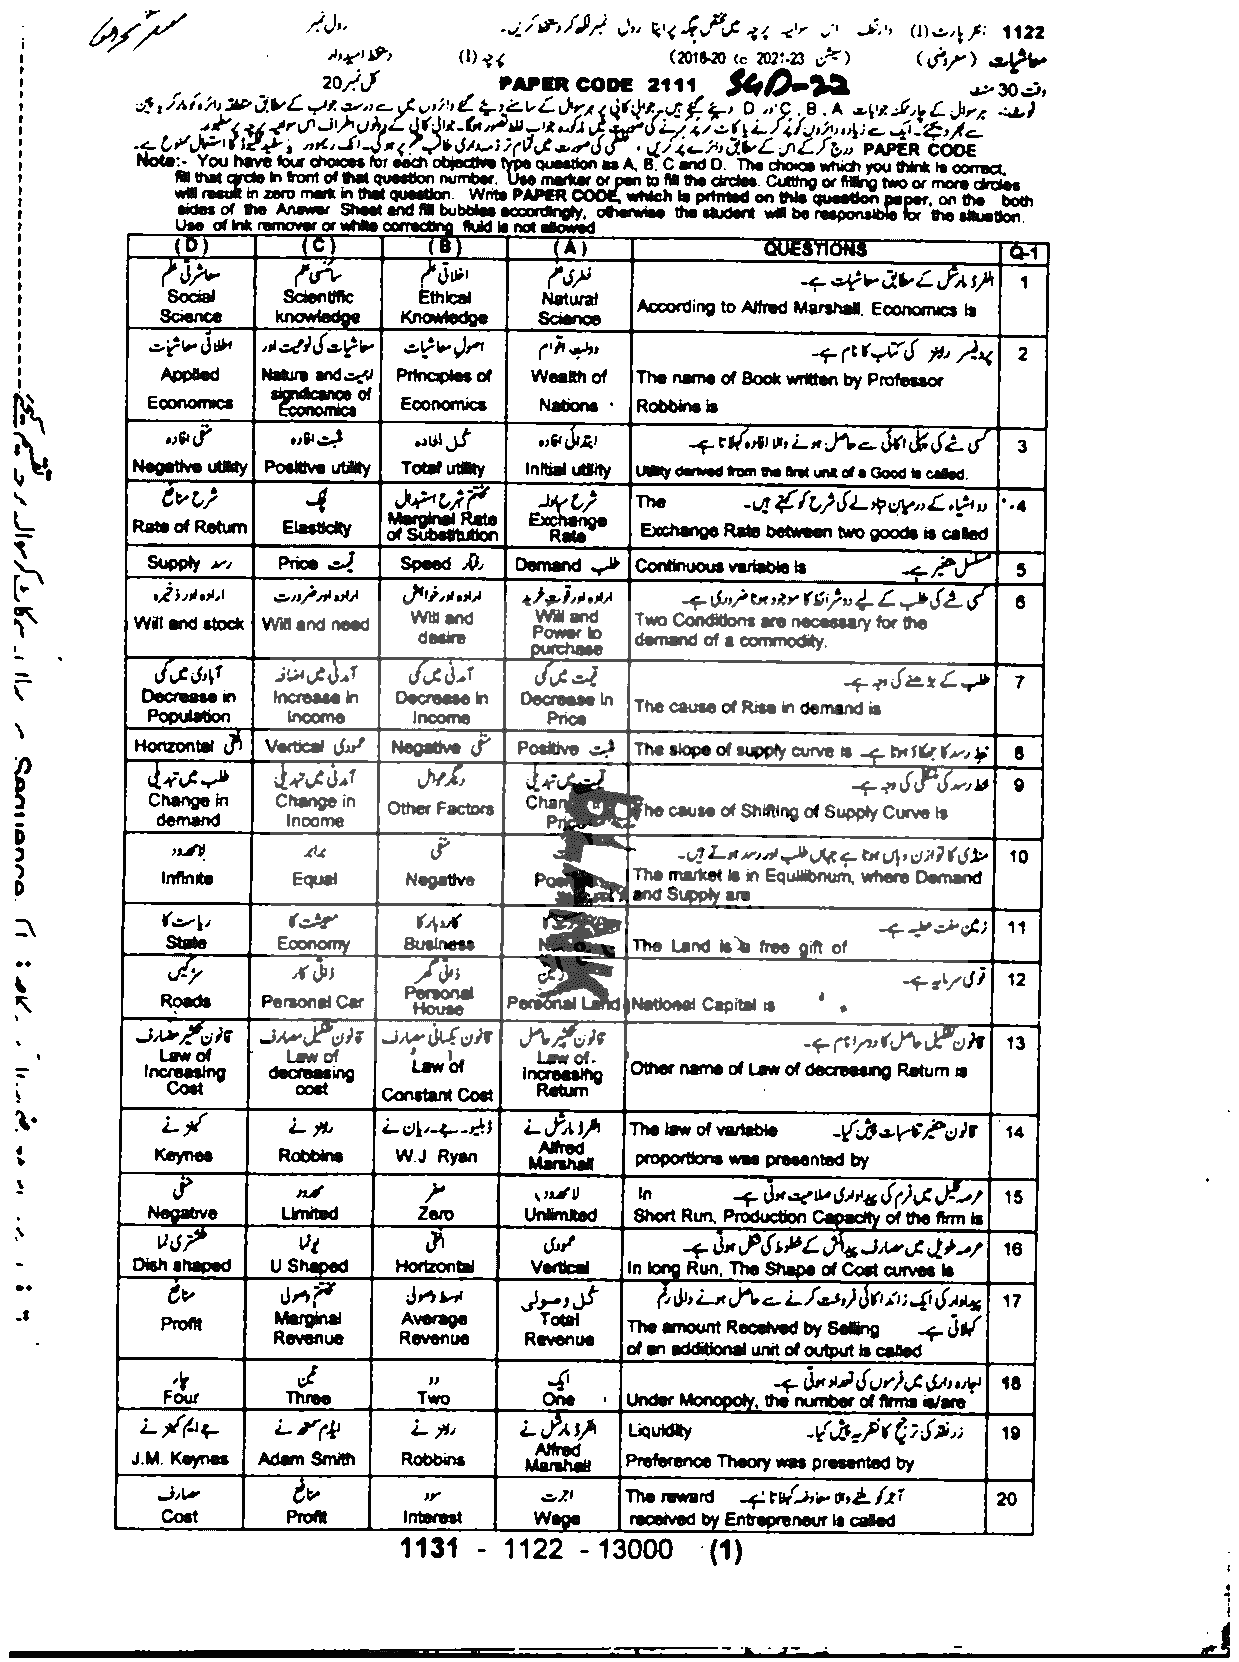 1122 انٹر پارٹ (I) وارننگ: اس سوالیہ پرچہ میں مختص جگہ پر اپنا رول نمبر لکھ کر دستخط کریں۔ رول نمبر
معاشیات (معروضی) (سیشن 2018-20 to 2021-23) پرچہ (I) دستخط امیدوار
وقت 30 منٹ PAPER CODE 2111 SGD-22 کل نمبر 20
نوٹ:- ہر سوال کے چار ممکنہ جوابات A , B , C اور D دیئے گئے ہیں۔ جوابی کاپی پر ہر سوال کے سامنے دیئے گئے دائروں میں سے درست جواب کے مطابق متعلقہ دائرہ کو مارکر یا پین
سے بھر دیجئے۔ ایک سے زیادہ دائروں کو پُر کرنے یا کاٹ کر پُر کرنے کی صورت میں مذکورہ جواب غلط تصور ہوگا۔ جوابی کاپی کے دونوں اطراف اس سوالیہ پرچہ پر مطبوعہ
PAPER CODE درج کر کے اس کے مطابق دائرے پُر کریں،
Note:- You have four choices for each objective type question as A, B, C and D. The choice which you think is correct,
fill that circle in front of that question number. Use marker or pen to fill the circles. Cutting or filling two or more circles
will result in zero mark in that question. Write PAPER CODE, which is printed on this question paper, on the both
sides of the Answer Sheet and fill bubbles accordingly, otherwise the student will be responsible for the situation.
Use of Ink remover or white correcting fluid is not allowed
(D) (C) (B) (A) QUESTIONS Q-1
معاشرتی علم سائنسی علم اخلاقی علم فطری علم الفرڈ مارشل کے مطابق معاشیات ہے۔ 1
Social Science Scientific knowledge Ethical Knowledge Natural Science According to Alfred Marshall, Economics is
اطلاقی معاشیات معاشیات کی نوعیت اور اہمیت اصول معاشیات دولت اقوام پروفیسر رابنز کی کتاب کا نام ہے۔ 2
Applied Economics Nature and significance of Economics Principles of Economics Wealth of Nations The name of Book written by Professor Robbins is
منفی افادہ مثبت افادہ کل افادہ ابتدائی افادہ کسی شے کی پہلی اکائی سے حاصل ہونے والا افادہ کہلاتا ہے۔ 3
Negative utility Positive utility Total utility Initial utility Utility derived from the first unit of a Good is called.
شرح منافع لچک مختتم شرح استبدال شرح مبادلہ دو اشیاء کے درمیان تبادلے کی شرح کو کہتے ہیں۔ 4
Rate of Return Elasticity Marginal Rate of Substitution Exchange Rate The Exchange Rate between two goods is called
Supply رسد Price قیمت Speed رفتار Demand طلب Continuous variable is مسلسل متغیر ہے۔ 5
ارادہ اور ذخیرہ ارادہ اور ضرورت ارادہ اور خواہش ارادہ اور قوت خرید کسی شے کی طلب کے لیے دو شرائط کا موجود ہونا ضروری ہے۔ 6
Will and stock Will and need Will and desire Will and Power to purchase Two Conditions are necessary for the demand of a commodity.
آبادی میں کمی آمدنی میں اضافہ آمدنی میں کمی قیمت میں کمی طلب کے بڑھنے کی وجہ ہے۔ 7
Decrease in Population Increase in Income Decrease in Income Decrease in Price The cause of Rise in demand is
Horizontal افقی Vertical عمودی Negative منفی Positive مثبت The slope of supply curve is خط رسد کا جھکاؤ ہوتا ہے۔ 8
طلب میں تبدیلی آمدنی میں تبدیلی دیگر عوامل قیمت میں تبدیلی خط رسد کی منتقلی کی وجہ ہے۔ 9
Change in demand Change in Income Other Factors The cause of Shifting of Supply Curve is
لامحدود برابر منفی منڈی کا توازن وہاں ہوتا ہے جہاں طلب اور رسد ہوتے ہیں۔ 10
Infinite Equal Negative The market is in Equilibrium, where Demand and Supply are
ریاست کا معیشت کا کاروبار کا زمین مفت عطیہ ہے۔ 11
State Economy Business The Land is a free gift of
سڑکیں ذاتی کار ذاتی گھر زمین قومی سرمایہ ہے۔ 12
Roads Personal Car Personal House Personal Land National Capital is
قانون تکثیر مصارف قانون تقلیل مصارف قانون یکسانی مصارف قانون تکثیر حاصل قانون تقلیل حاصل کا دوسرا نام ہے۔ 13
Law of Increasing Cost Law of decreasing cost Law of Constant Cost Law of Increasing Return Other name of Law of decreasing Return is
کینز نے رابنز نے ڈبلیو۔جے۔ریان نے الفرڈ مارشل نے The law of variable قانون متغیر تناسبات پیش کیا۔ 14
Keynes Robbins W.J Ryan Alfred Marshall proportions was presented by
منفی محدود صفر لامحدود In عرصہ قلیل میں فرم کی پیداواری صلاحیت ہوتی ہے۔ 15
Negative Limited Zero Unlimited Short Run, Production Capacity of the firm is
طشتری نما یو نما افقی عمودی عرصہ طویل میں مصارف پیدائش کے خطوط کی شکل ہوتی ہے۔ 16
Dish shaped U Shaped Horizontal Vertical In long Run, The Shape of Cost curves is
منافع مختتم وصولی اوسط وصولی کل وصولی پیداوار کی ایک زائد اکائی فروخت کرنے سے حاصل ہونے والی رقم کہلاتی ہے۔ 17
Profit Marginal Revenue Average Revenue Total Revenue The amount Received by Selling of an additional unit of output is called
چار تین دو ایک اجارہ داری میں فرموں کی تعداد ہوتی ہے۔ 18
Four Three Two One Under Monopoly, the number of firms is/are
جے ایم کینز نے ایڈم سمتھ نے رابنز نے الفرڈ مارشل نے Liquidity زر نقد کی ترجیح کا نظریہ پیش کیا۔ 19
J.M. Keynes Adam Smith Robbins Alfred Marshall Preference Theory was presented by
مصارف منافع سود اجرت The reward آجر کو ملنے والا معاوضہ کہلاتا ہے۔ 20
Cost Profit Interest Wage received by Entrepreneur is called
1131 - 1122 - 13000 (1)